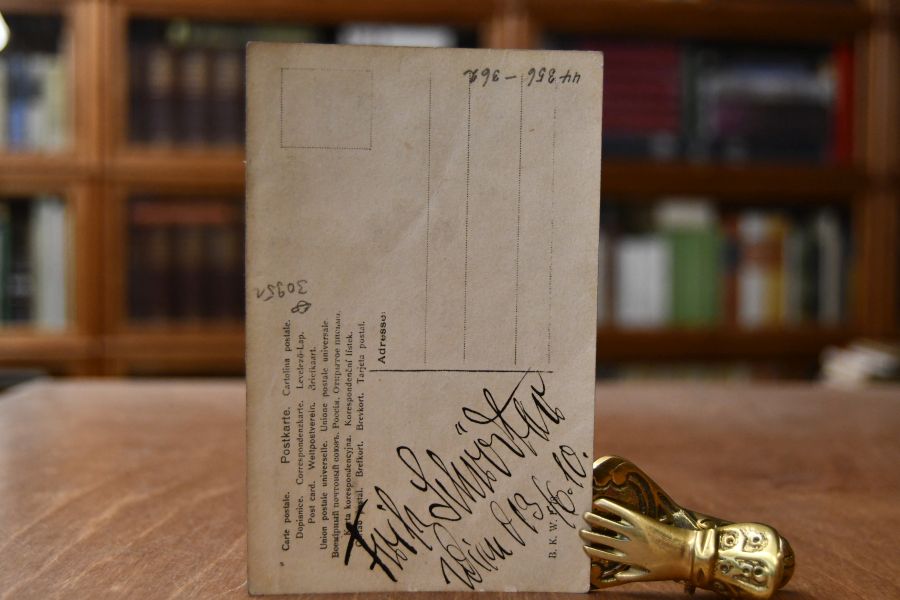 Carte postale. Postkarte. Cartolina postale.
Dopisnice. Correspondenzkarte. Levelező-Lap.
Post card. Weltpostverein. Briefkaart.
Union postale universelle. Unione postale universale.
Всемірный почтовый союзъ. Россія. Открытое письмо.
Karta korespondencyjna. Korespondenční lístek.
postal. Brefkort. Brevkort. Tarjeta postal.
30951
Adresse:
44356-362
Schrödter
Wien 13/6.10.
B. K. W. I.